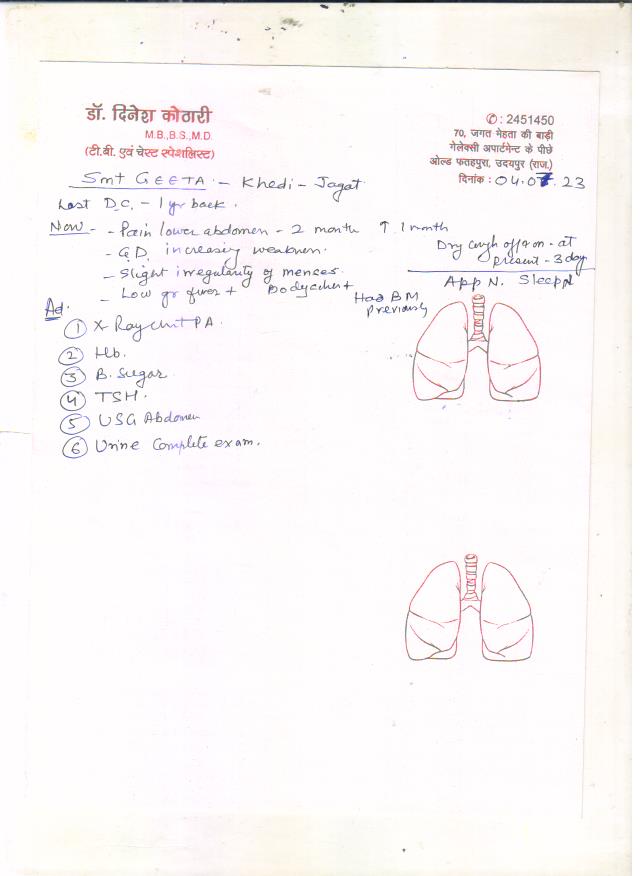 डॉ. दिनेश कोठारी
M.B.,B.S.,M.D.
(टी.बी. एवं चेस्ट स्पेशलिस्ट)
✆ : 2451450
70, जगत मेहता की बाड़ी
गेलेक्सी अपार्टमेन्ट के पीछे
ओल्ड फतहपुरा, उदयपुर (राज.)
दिनांक : 04.07.23
Smt GEETA. - Khedi - Jagat
Last D.C. - 1 yr back.
Now - - Pain lower abdomen - 2 month ↑ 1 month
- G.D. increasing weakness.
- Slight irregularity of menses.
- Low gr fever + Bodyache +
Dry cough off & on - at
present - 3 day
App N. Sleep N
Had BM
Previously
Ad.
① X Ray chest PA.
② Hb.
③ B. Sugar
④ TSH.
⑤ USG Abdomen
⑥ Urine Complete exam.